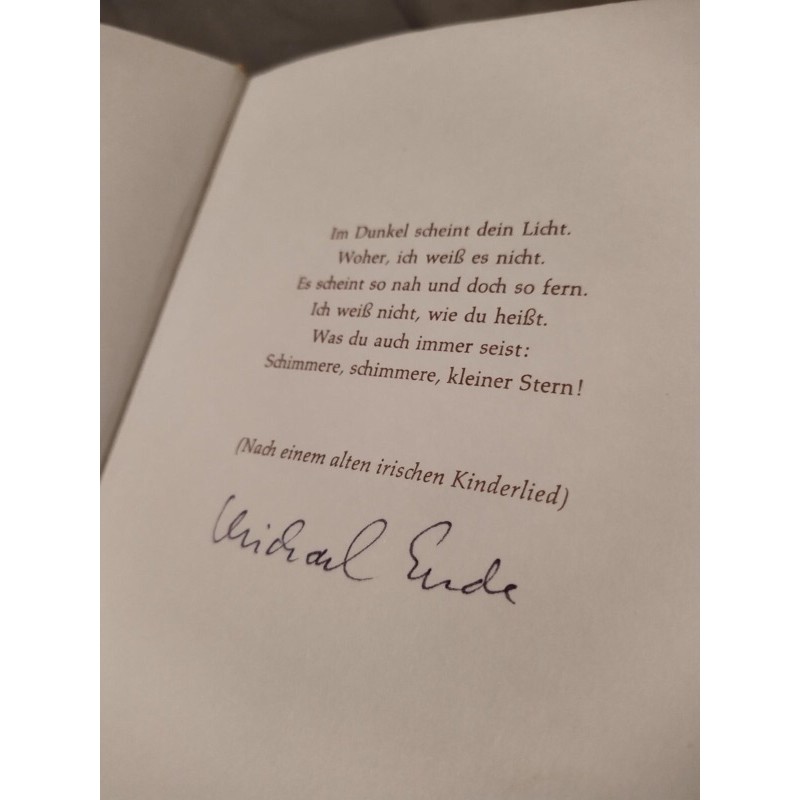 Im Dunkel scheint dein Licht.
Woher, ich weiß es nicht.
Es scheint so nah und doch so fern.
Ich weiß nicht, wie du heißt.
Was du auch immer seist:
Schimmere, schimmere, kleiner Stern!
(Nach einem alten irischen Kinderlied)
Michael Ende